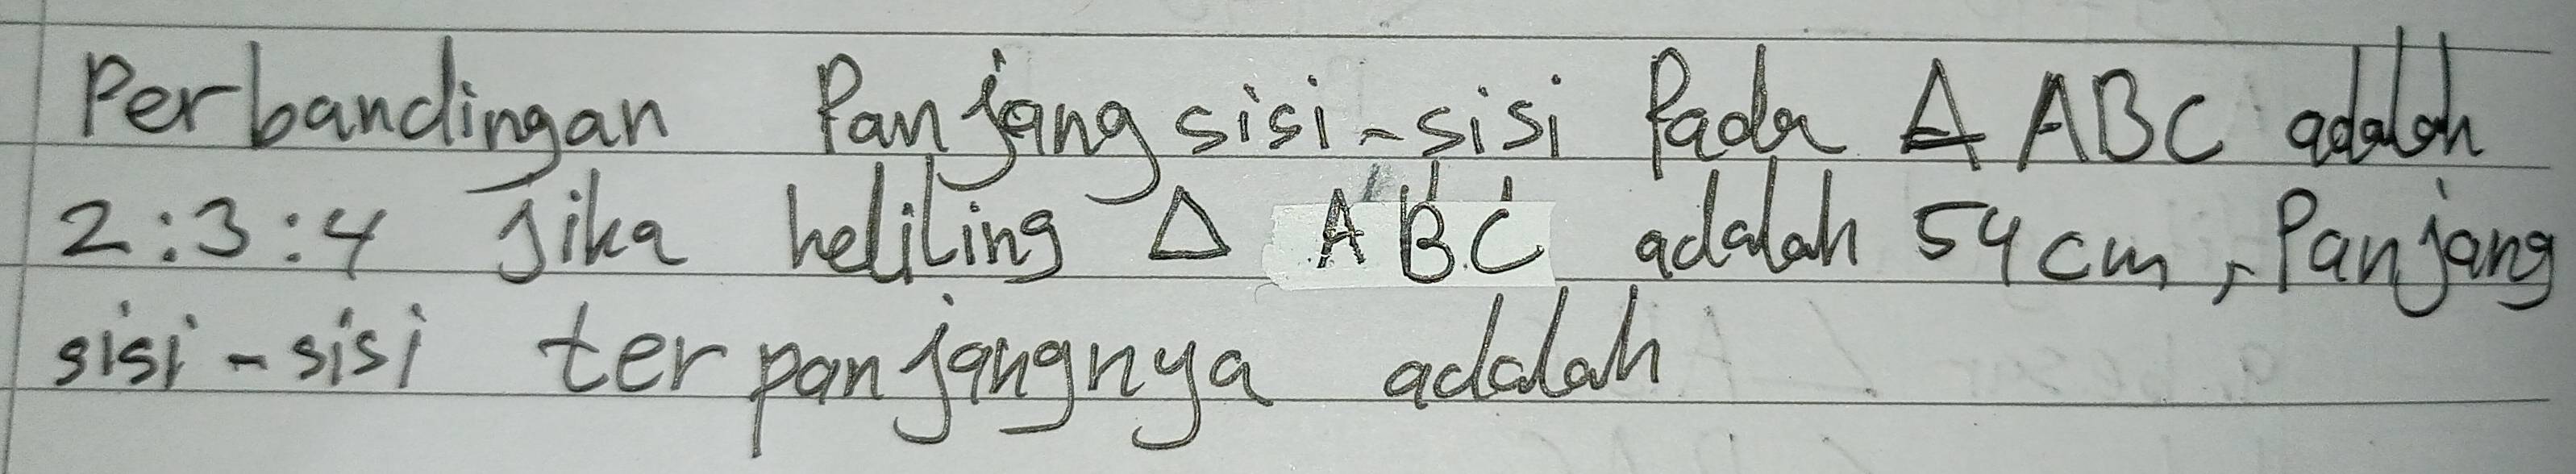 Perbandingan Panjang sisi-sisi Pada △ ABC adalah
2:3:4 Jika keliling △ ABC adalah 54 cm, Panjang
sisi-sisi terpanjangnya adalah